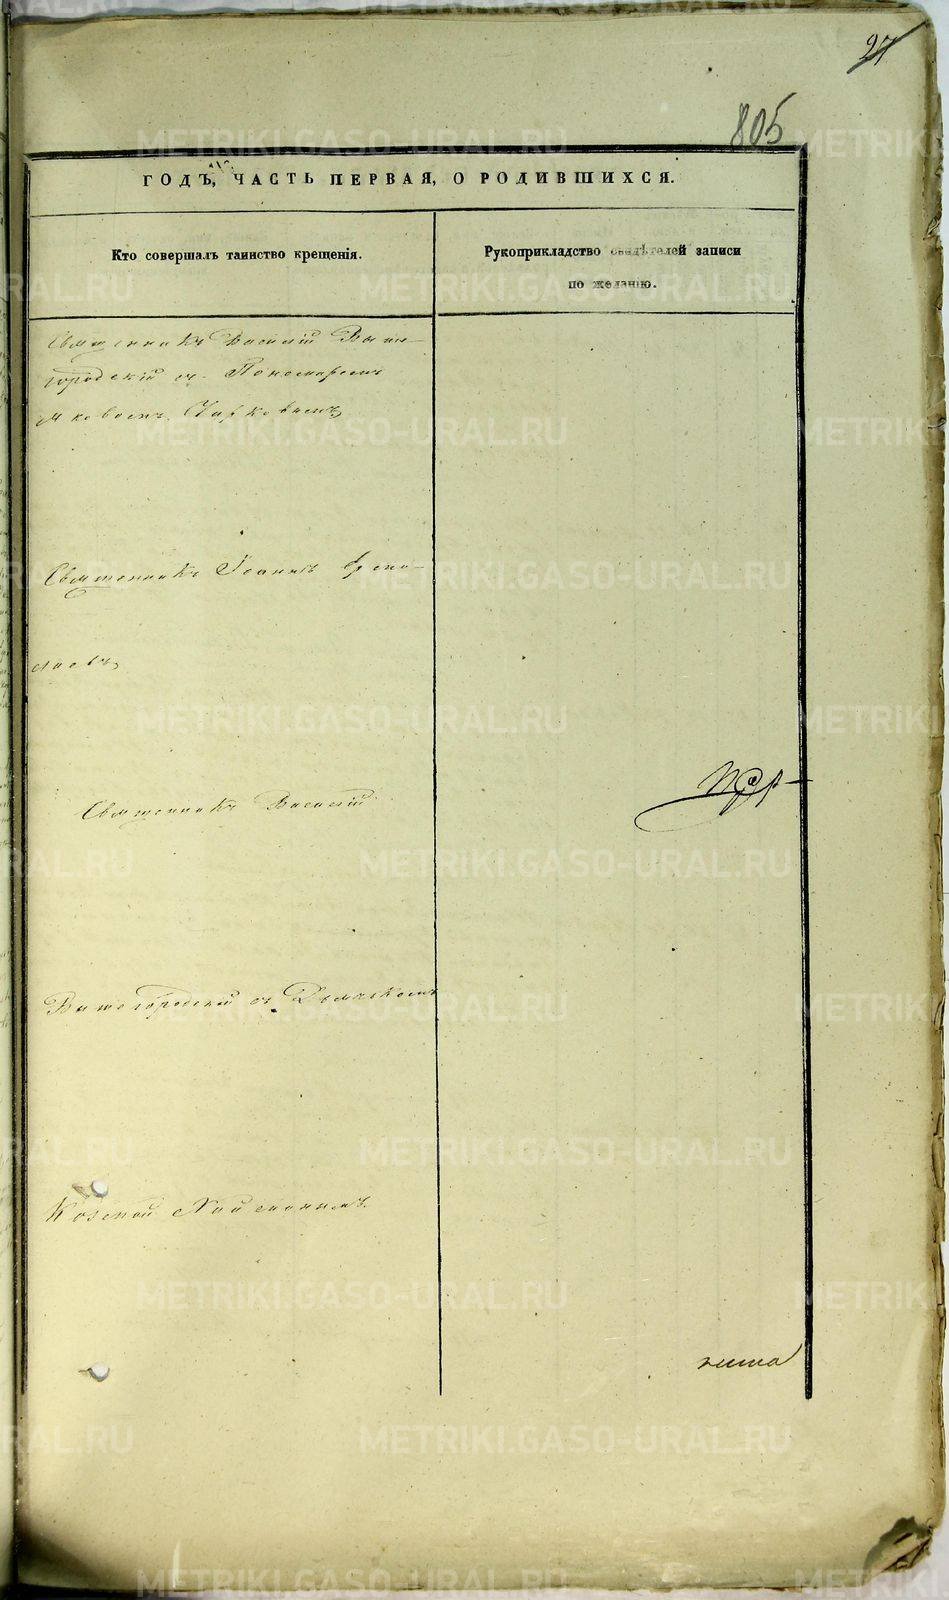 27
805
ГОДЪ, ЧАСТЬ ПЕРВАЯ, О РОДИВШИХСЯ.
Кто совершалъ таинство крещенія.
Рукоприкладство свидѣтелей записи
по желанію.
Священникъ Василій Выше-
городскій съ Пономаремъ
Яковомъ Чирковымъ
Священникъ Іоаннъ
Священникъ Василій
Вышегородскій съ Дьячкомъ
Козмой
METRIKI.GASO-URAL.RU